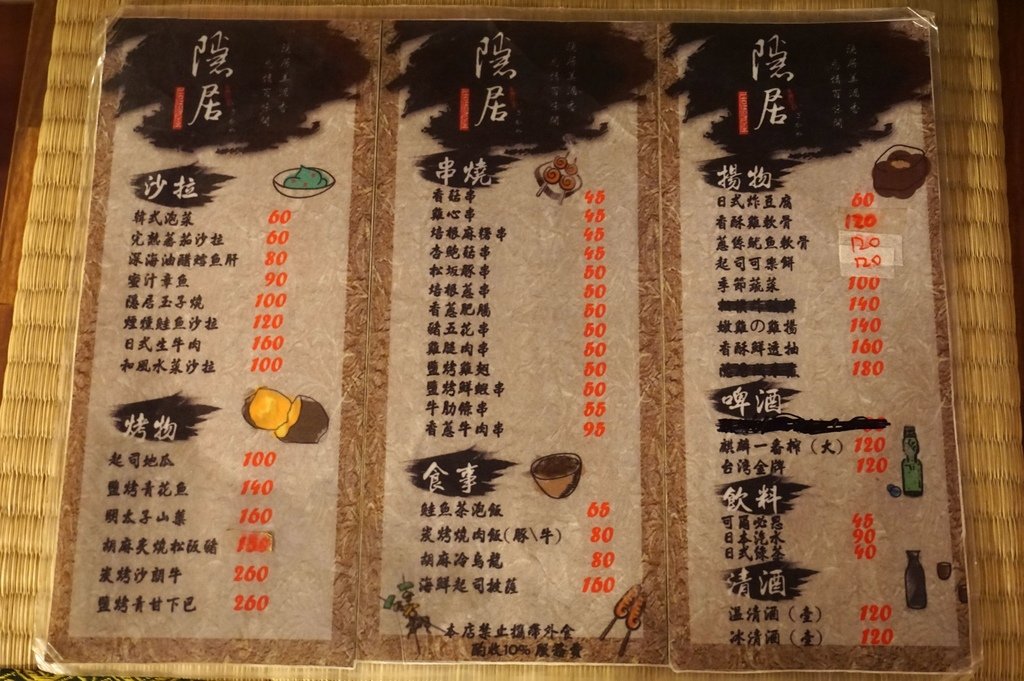 隱居
沙拉
韓式泡菜 60
完熟蕃茄沙拉 60
深海油醋鱈魚肝 80
蜜汁章魚 90
隱居玉子燒 100
煙燻鮭魚沙拉 120
日式生牛肉 160
和風水菜沙拉 100
烤物
起司地瓜 100
鹽烤青花魚 140
明太子山藥 160
胡麻炙燒松阪豬
炭烤沙朗牛 260
鹽烤青甘下巴 260
隱居
串燒
香菇串 45
雞心串 45
培根麻糬串 45
杏鮑菇串 45
松坂豚串 50
培根蔥串 50
香蔥肥腸 50
豬五花串 50
雞腿肉串 50
鹽烤雞翅 50
鹽烤鮮蝦串 50
牛肋條串 55
香蔥牛肉串 95
食事
鮭魚茶泡飯 65
炭烤燒肉飯(豚\牛) 80
胡麻冷烏龍 80
海鮮起司披薩 160
本店禁止攜帶外食
酌收10% 服務費
隱居
揚物
日式炸豆腐 60
香酥雞軟骨 120
蔥絲魷魚軟骨 120
起司可樂餅 120
季節蔬菜 100
140
嫩雞の雞揚 140
香酥鮮透抽 160
180
啤酒
麒麟一番搾(大) 120
台湾金牌 120
飲料
可爾必思 45
日本汽水 90
日式綠茶 40
清酒
溫清酒(壺) 120
冰清酒(壺) 120